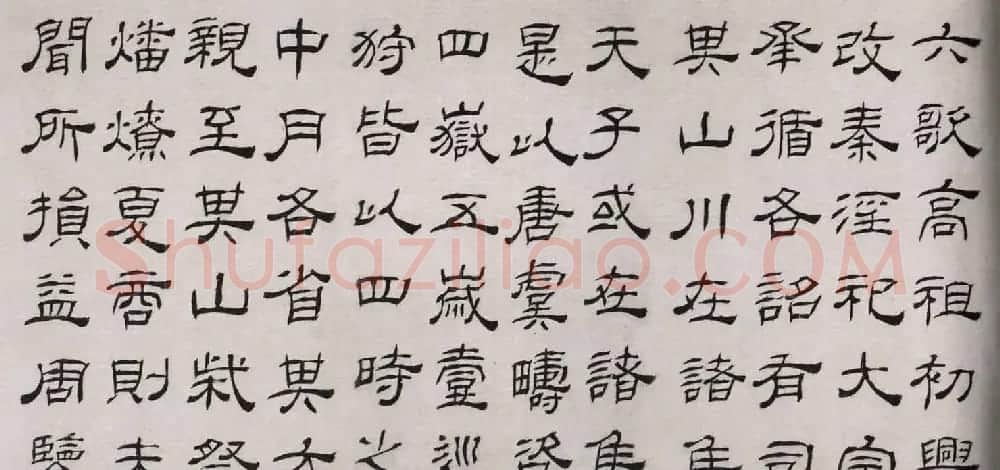 六歌高祖初興
改秦淫祀大宗
承循各詔有司
其山川在諸侯
天子或在諸侯
是以唐虞疇咨
四嶽五歲壹巡
狩皆以四時之
中月各省其方
親至其山柴祭
燔燎夏商則未
聞所損益周
Shufaziliao.COM